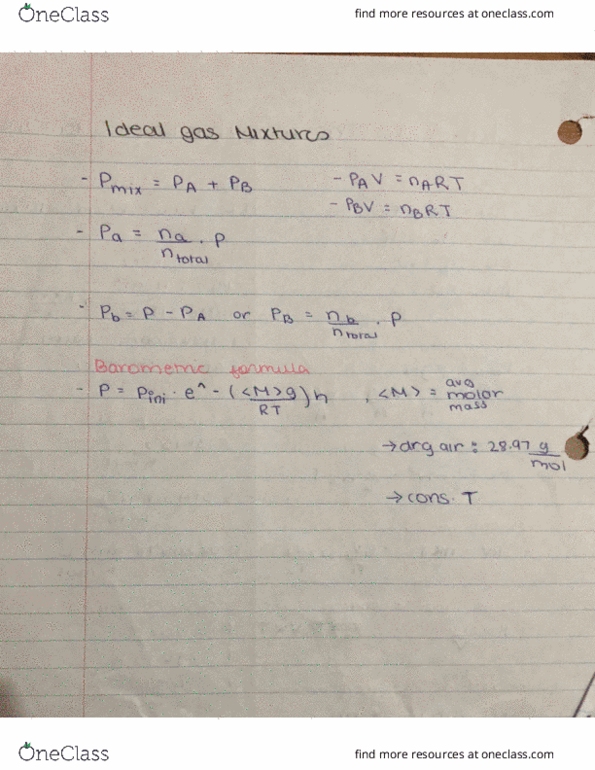 OneClass
find more resources at oneclass.com
Ideal gas Mixtures
- Pmix = PA + PB
- PAV = nART
- PBV = nBRT
- Pa = na/ntotal · P
- Pb = P - PA or PB = nb/ntotal · P
Barometric formula
- P = Pini · e^ - (<M>g/RT)h , <M> = avg molar mass
→ drg air : 28.97 g/mol
→ cons. T
OneClass
find more resources at oneclass.com